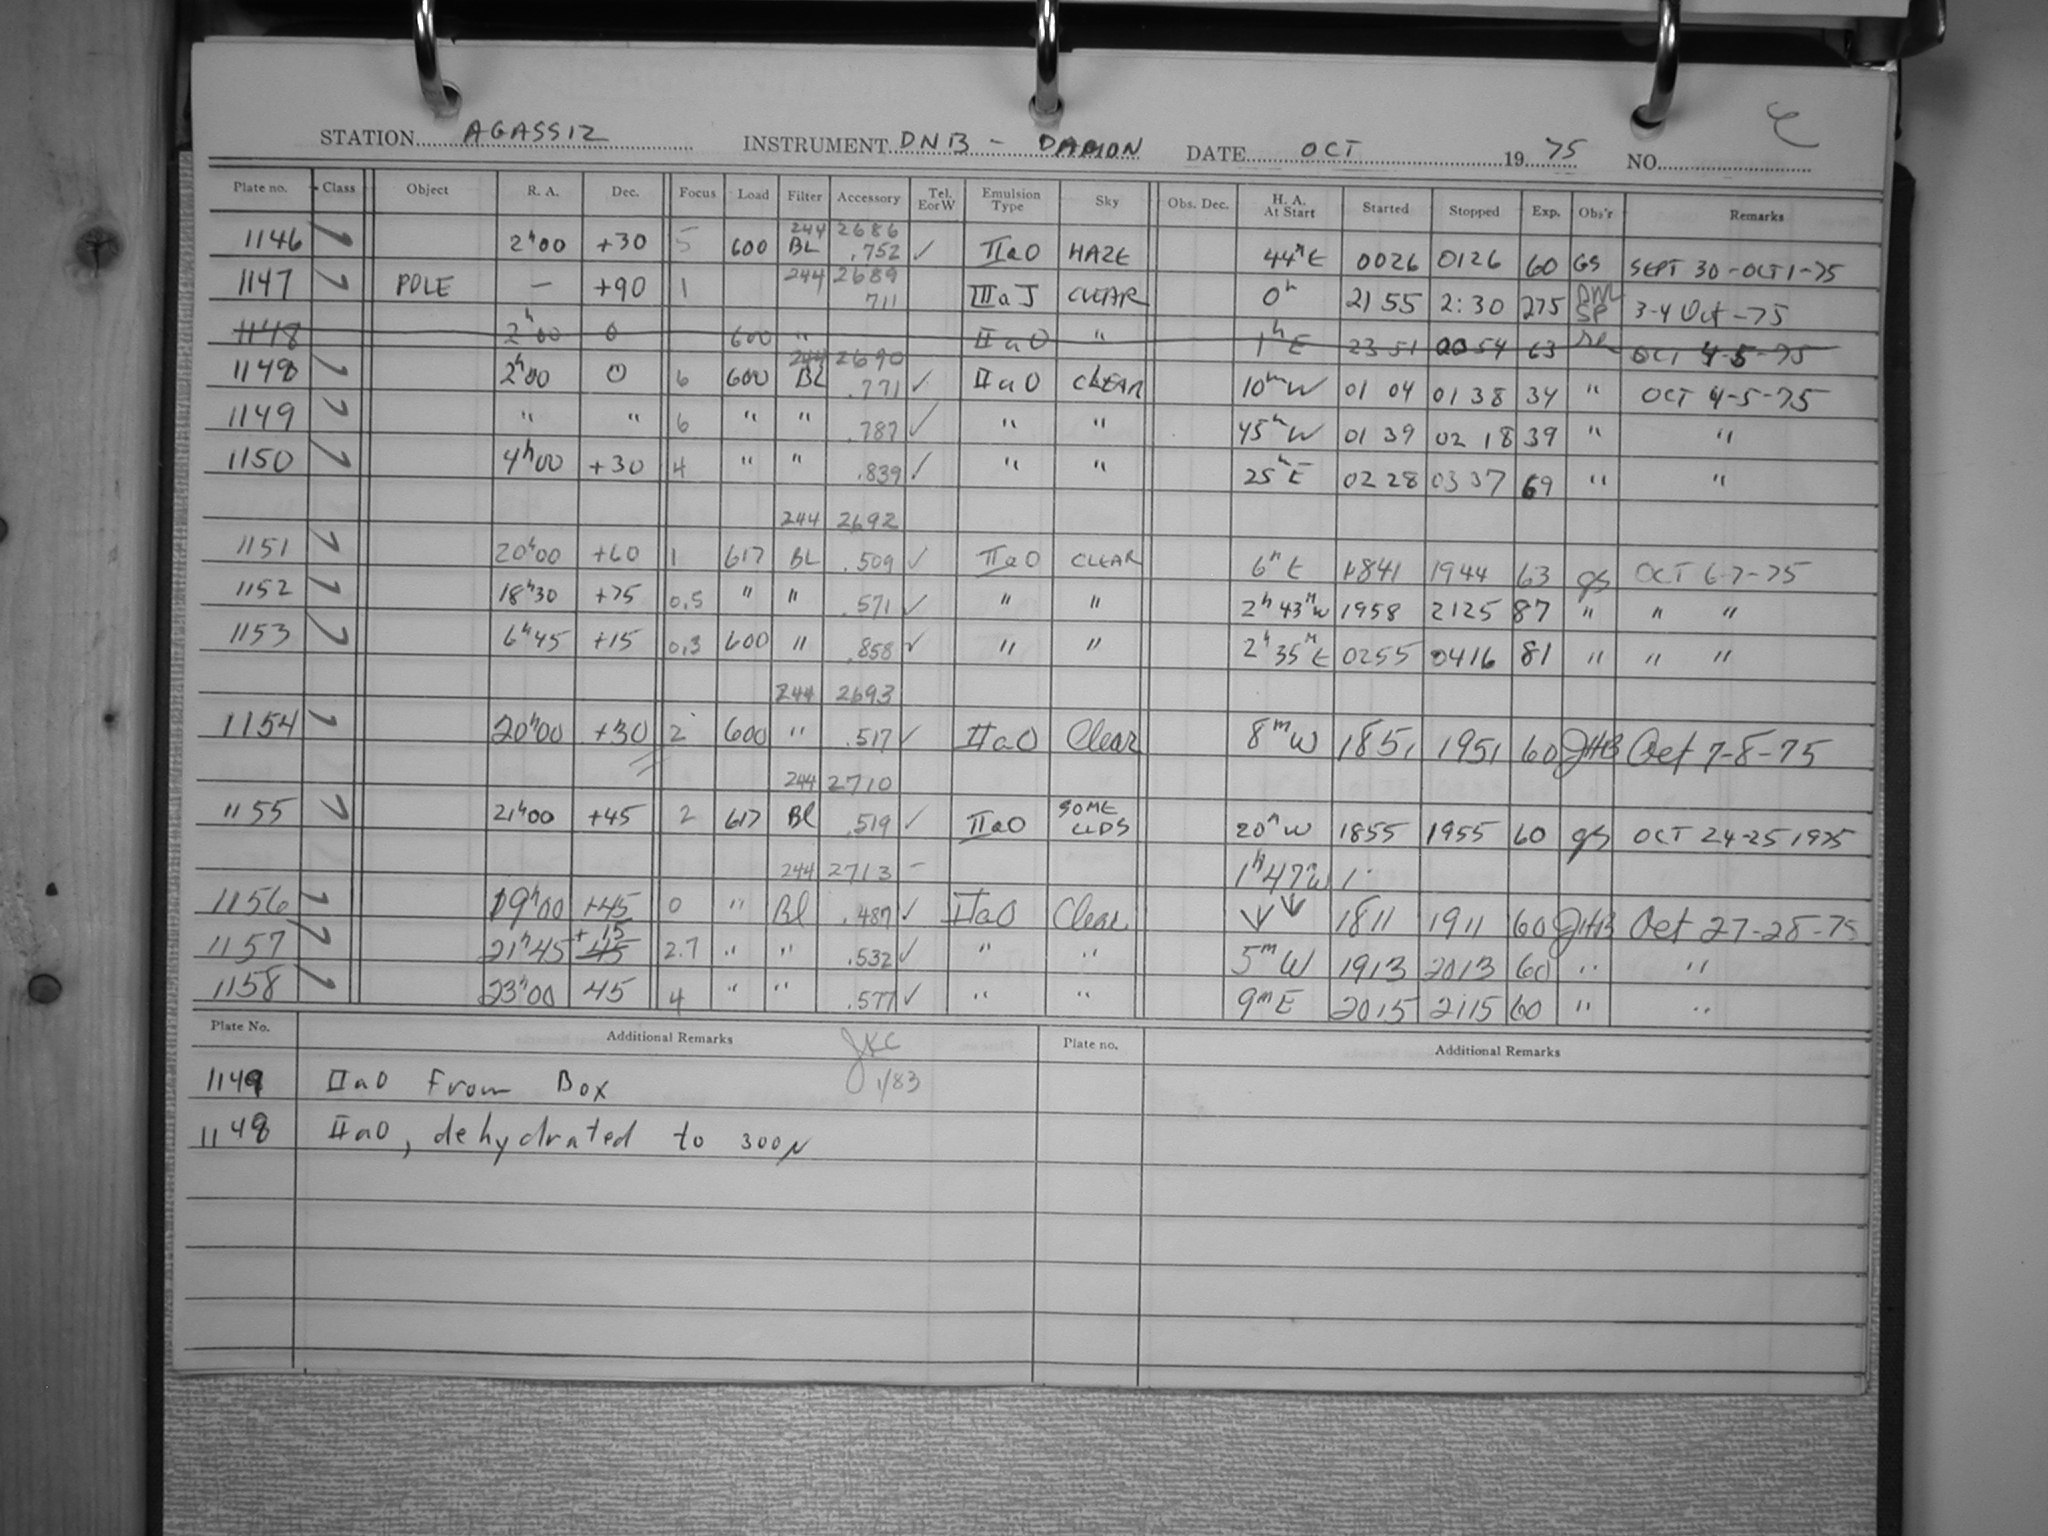 STATION AGASSIZ INSTRUMENT DNB - DAMON DATE OCT 19 75 NO.
Plate no. Class Object R. A. Dec. Focus Load Filter Accessory Tel. E or W Emulsion Type Sky Obs. Dec. H. A. At Start Started Stopped Exp. Obs'r Remarks
244 2686
1146 2h00 +30 5 600 BL .752 ✓ IIaO HAZE 44m E 0026 0126 60 GS SEPT 30-OCT 1-75
244 2689
1147 POLE — +90 1 711 IIIaJ CLEAR 0h 2155 2:30 275 SP 3-4 Oct-75
1148 2h00 0 600 " IIaO " 1h E 2351 0054 63 OCT 4-5-75
244 2690
1148 2h00 0 6 600 BL .771 ✓ IIaO CLEAR 10m W 01 04 01 38 34 " OCT 4-5-75
1149 " " 6 " " .787 ✓ " " 45m W 01 39 02 18 39 " "
1150 4h00 +30 4 " " .839 ✓ " " 25m E 02 28 03 37 69 " "
244 2692
1151 20h00 +60 1 617 BL .509 ✓ IIaO CLEAR 6m E 1841 1944 63 gs OCT 6-7-75
1152 18h30 +75 0.5 " " .571 ✓ " " 2h 43m W 1958 2125 87 " " "
1153 6h45 +15 0.3 600 " .858 ✓ " " 2h 35m E 0255 0416 81 " " "
244 2693
1154 20h00 +30 2 600 " .517 ✓ IIaO Clear 8m W 1851 1951 60 JHB Oct 7-8-75
244 2710
1155 21h00 +45 2 617 Bl .519 ✓ IIaO SOME CLDS 20m W 1855 1955 60 gs OCT 24-25 1975
244 2713 – 1h 47m W 1
1156 19h00 +45 0 " Bl .487 ✓ IIaO Clear 1811 1911 60 JHB Oct 27-28-75
1157 21h45 +15 45 2.7 " " .532 ✓ " " 5m W 1913 2013 60 " "
1158 23h00 45 4 " " .577 ✓ " " 9m E 2015 2115 60 " "
Plate No. Additional Remarks JKC Plate no. Additional Remarks
1149 IIaO From Box 1/83
1148 IIaO, dehydrated to 300µ